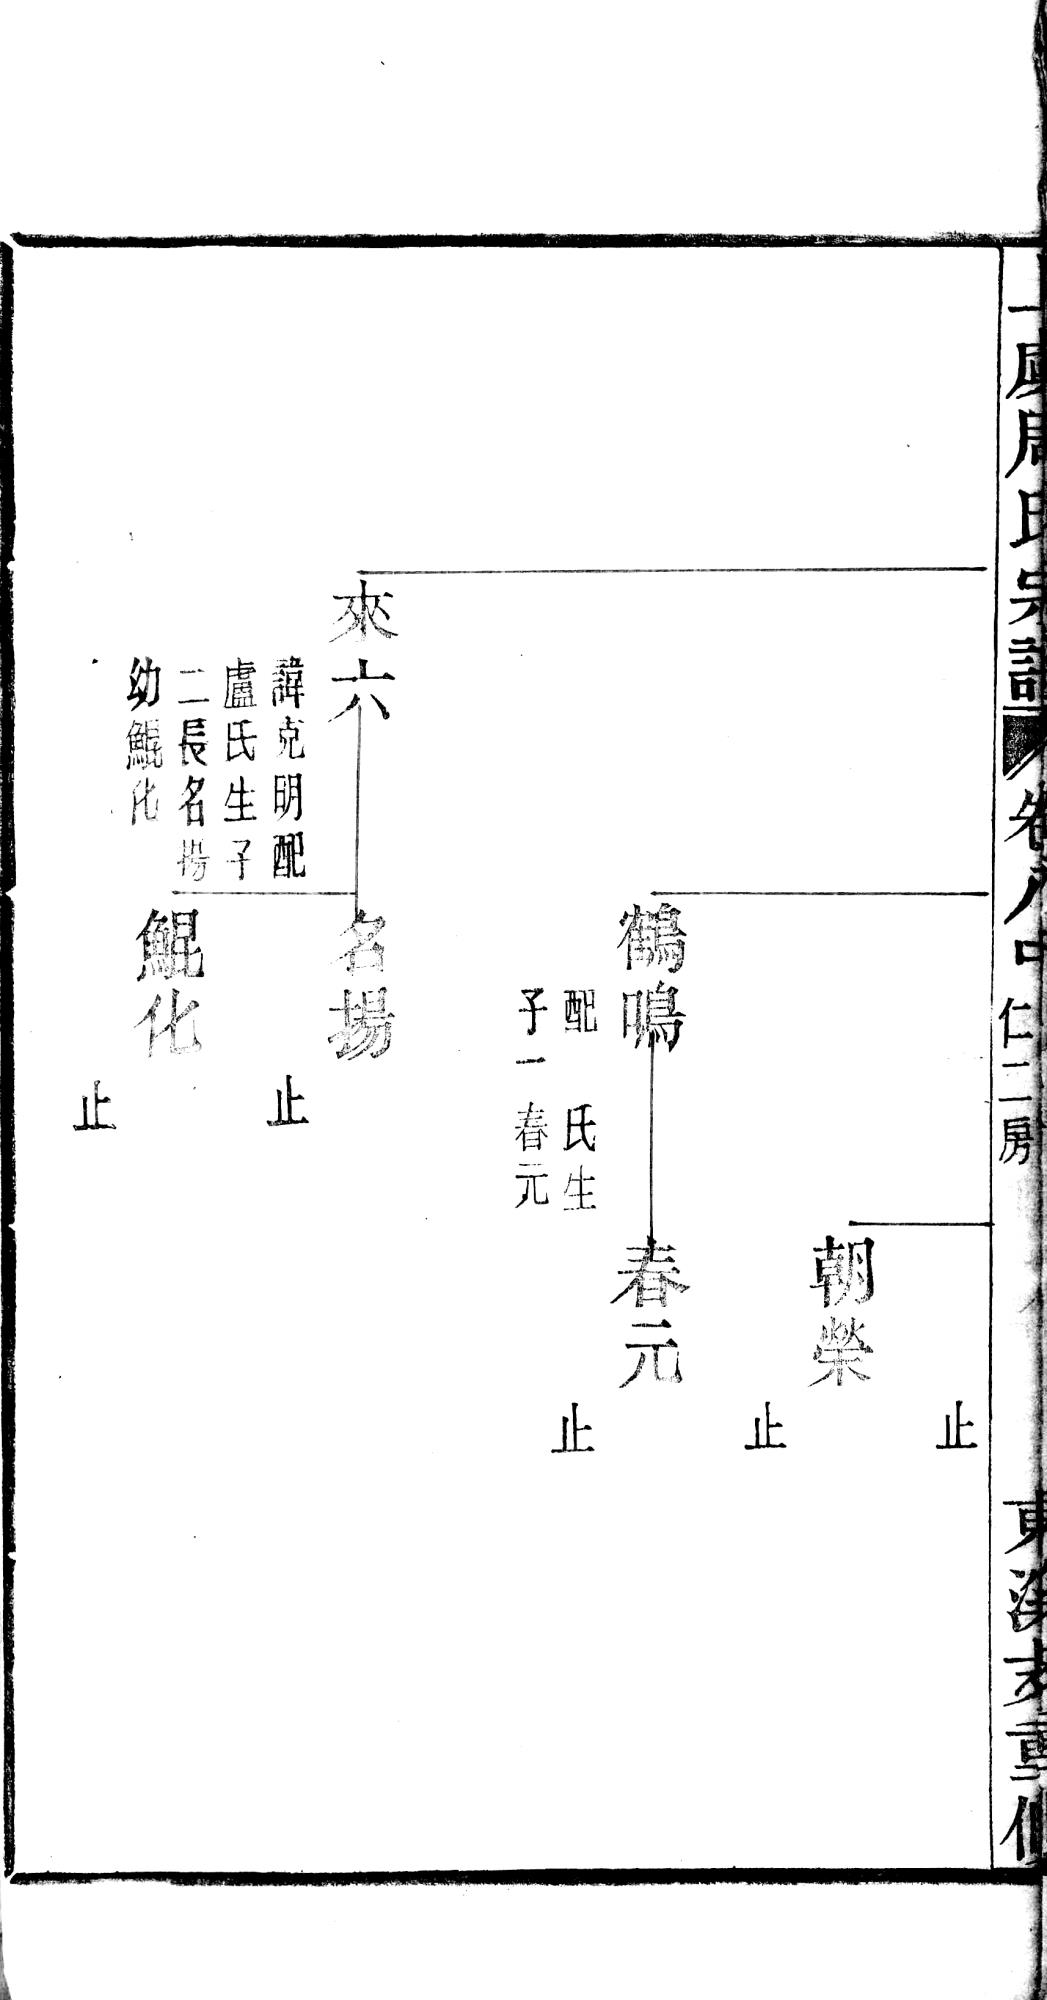 周氏宗譜 卷八中 仁二房
重修
止
朝榮
止
鶴鳴
配 氏生
子一春元
春元
止
來六
諱克明配
盧氏生子
二長名揚
幼鯤化
名揚
止
鯤化
止